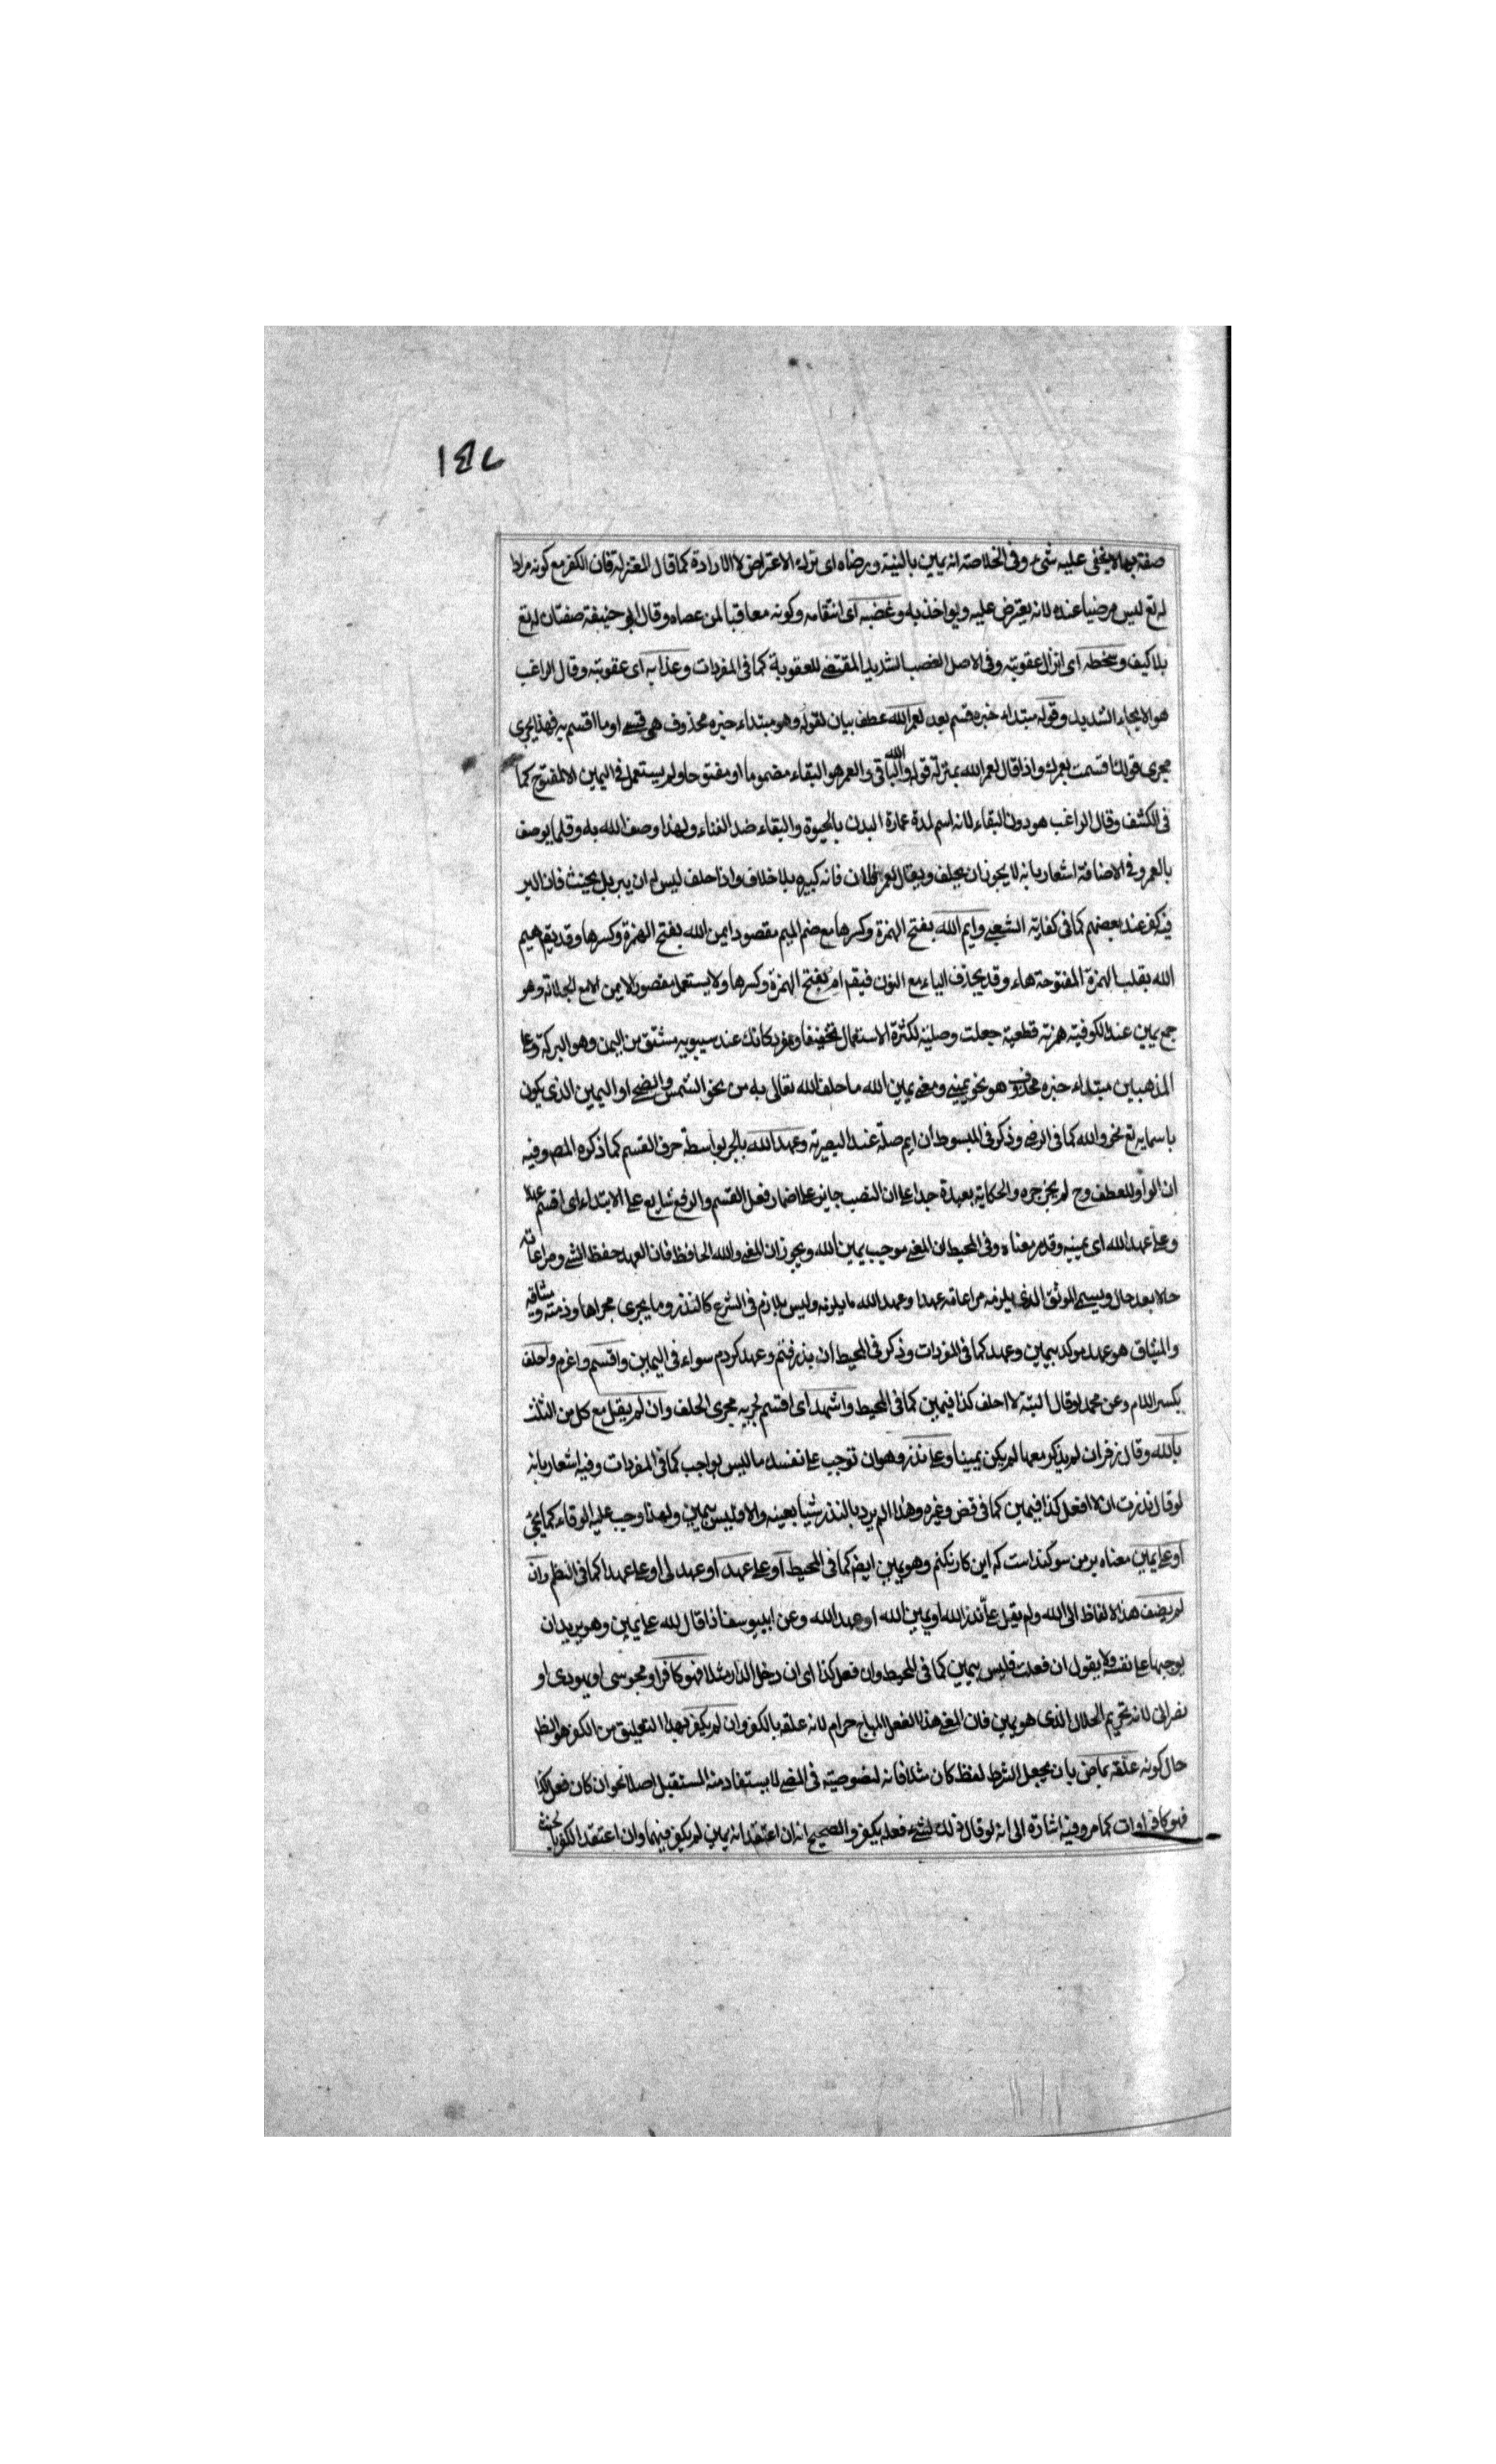 ١٤٧
صفة بها لا يخفى عليه شيء وفي الخلاصة انه يمين بالنية ورضاه اى ترك الاعتراض لا الارادة كما قال المعتزلة فان الكفر مع كونه مرادا
له تع ليس مرضيا عنده لانه يعترض عليه ويواخذ به وغضبه اى انتقامه وكونه معاقبا لمن عصاه وقال ابو حنيفة صفتان له تع
بلا كيف وسخطه اى انزال عقوبته وفي الاصل الغضب الشديد المقتضى للعقوبة كما في المفردات وعذابه اى عقوبته وقال الراغب
هو الايجاع الشديد وقوله مبتداء خبره قسم بعد لعمر الله عطف بيان لقوله وهو مبتداء خبره محذوف هى قسمى او ما اقسم به فهذا يجرى
مجرى قولك اقسمت بعمرك واذا قال لعمر الله بمنزلة قوله والله الباقى والعمر هو البقاء مضموما او مفتوحا ولم يستعمل في اليمين الا المفتوح كما
في الكشف وقال الراغب هو دون البقاء لانه اسم لمدة عمارة البدن بالحيوة والبقاء ضد الفناء ولهذا وصف الله به وقلما يوصف
بالعمر وفي الاضافة اشعار بانه لا يجوز ان يحلف ويقال لعمر فلان فانه كبيرة بلا خلاف واذا حلف ليس له ان يبر بل يحنث فان البر
فيه كفر عند بعضهم كما في كفاية الشعبى وايم الله بفتح الهمزة وكسرها مع ضم الميم مقصور ايمن الله بفتح الهمزة وكسرها وقد يقم هيم
الله بقلب الهمزة المفتوحة هاء وقد يحذف الياء مع النون فيقم ام بفتح الهمزة وكسرها ولا يستعمل مقصور الايمن الا مع الجلالة وهو
جمع يمين عند الكوفية همزته قطعية جعلت وصلية لكثرة الاستعمال تخفيفا ومفرد كانك عند سيبويه مشتق من اليمن وهو البركة وعلى
المذهبين مبتداء خبره محذوف هو نحو يمينى ومعنى يمين الله ما حلف الله تعالى به من نحو الشمس والضحى او اليمين الذى يكون
باسمايه تع نحو والله كما في الرضى وذكر في المبسوط ان ايم صلة عند البصرية وعهد الله بالجر بواسطة حرف القسم كما ذكره المصـ وفيه
ان الواو للعطف وح لم يجز جره والحكاية بعيدة جدا على ان النصب جايز على اضمار فعل القسم والرفع شايع على الابتداء اى اقسم عهد
وعلى عهد الله اى يمينه وقد مر معناه وفي المحيط ان المعنى موجب يمين الله ويجوز ان المعنى والله الحافظ فان العهد حفظ الشى ومراعاته
حالا بعد حال ويسمى الموثق الذى يلزمه مراعاته عهدا وعهد الله ما يلزمه وليس بلازم في الشرع كالنذر وما يجرى مجراها وذمته وميثاقه
والميثاق هو عهد موكد بيمين وعهد كما في المفردات وذكر في المحيط ان بذرفتم وعهد كردم سواء في اليمين واقسم واعزم واحلف
بكسر اللام وعن محمد لو قال البته لا احلف كذا فيمين كما في المحيط واشهد اى اقسم لجريه مجرى الحلف وان لم يقل مع كل من الثلث
بالله وقال زفر ان لم يذكر معها لم يكن يمينا وعلى نذر وهو ان توجب على نفسك ما ليس بواجب كما في المفردات وفيه اشعار بانه
لو قال نذرت ان لا افعل كذا فيمين كما في قض وغيره وهذا لم يرد بالنذر شيا بعينه والا فليس بيمين ولهذا وجب عليه الوفاء كما يجئ
او على يمين معناه بر من سوكند است كه اين كار نكنم وهو يمين ايضـ كما في المحيط او على عهد او عهد لى او على عهدا كما في النظم وان
لم يضف هذه الالفاظ الى الله ولم يقل على نذر الله او يمين الله او عهد الله وعن ابييوسف اذا قال لله على يمين وهو يريد ان
يوجبها على نفسه ولا يقول ان فعلت فليس بيمين كما في المحيط وان فعل كذا اى ان دخل الدار مثلا فهو كافر او مجوسى او يهودى او
نصرانى لانه تحريم الحلال الذى هو يمين فان المعنى هذا الفعل المباح حرام لانه علقه بالكفر وان لم يكفر بهذا التعليق من الكفر هو الظـ
حال كونه علقه بماض بان يجعل الشرط لفظ كان مثلا فانه لنصوصيته في المضى لا يستفاد منه المستقبل اصلا نحو ان كان فعل كذا
فهو كافر اوات كما مر وفيه اشارة الى انه لو قال ذلك لشىء فعله يكفر والصحيح انه ان اعتقد انه يمين لم يكفر فيهما وان اعتقد الكفر بالحنث